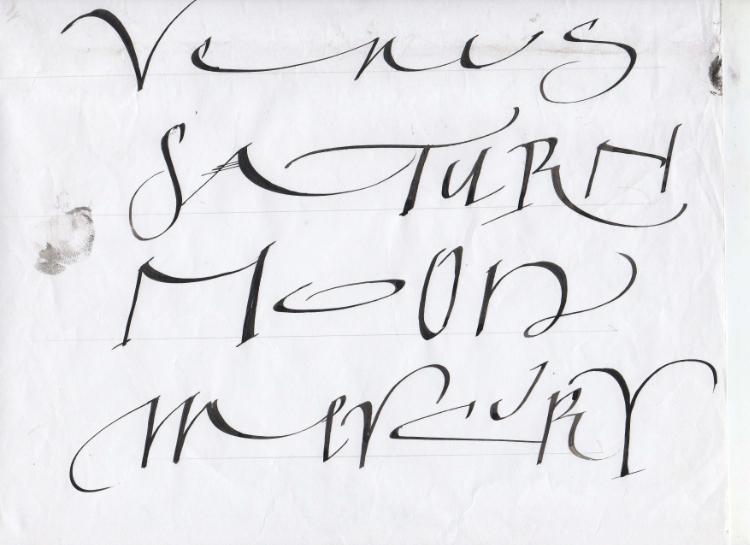 Venus
SATURN
MOON
MERCURY